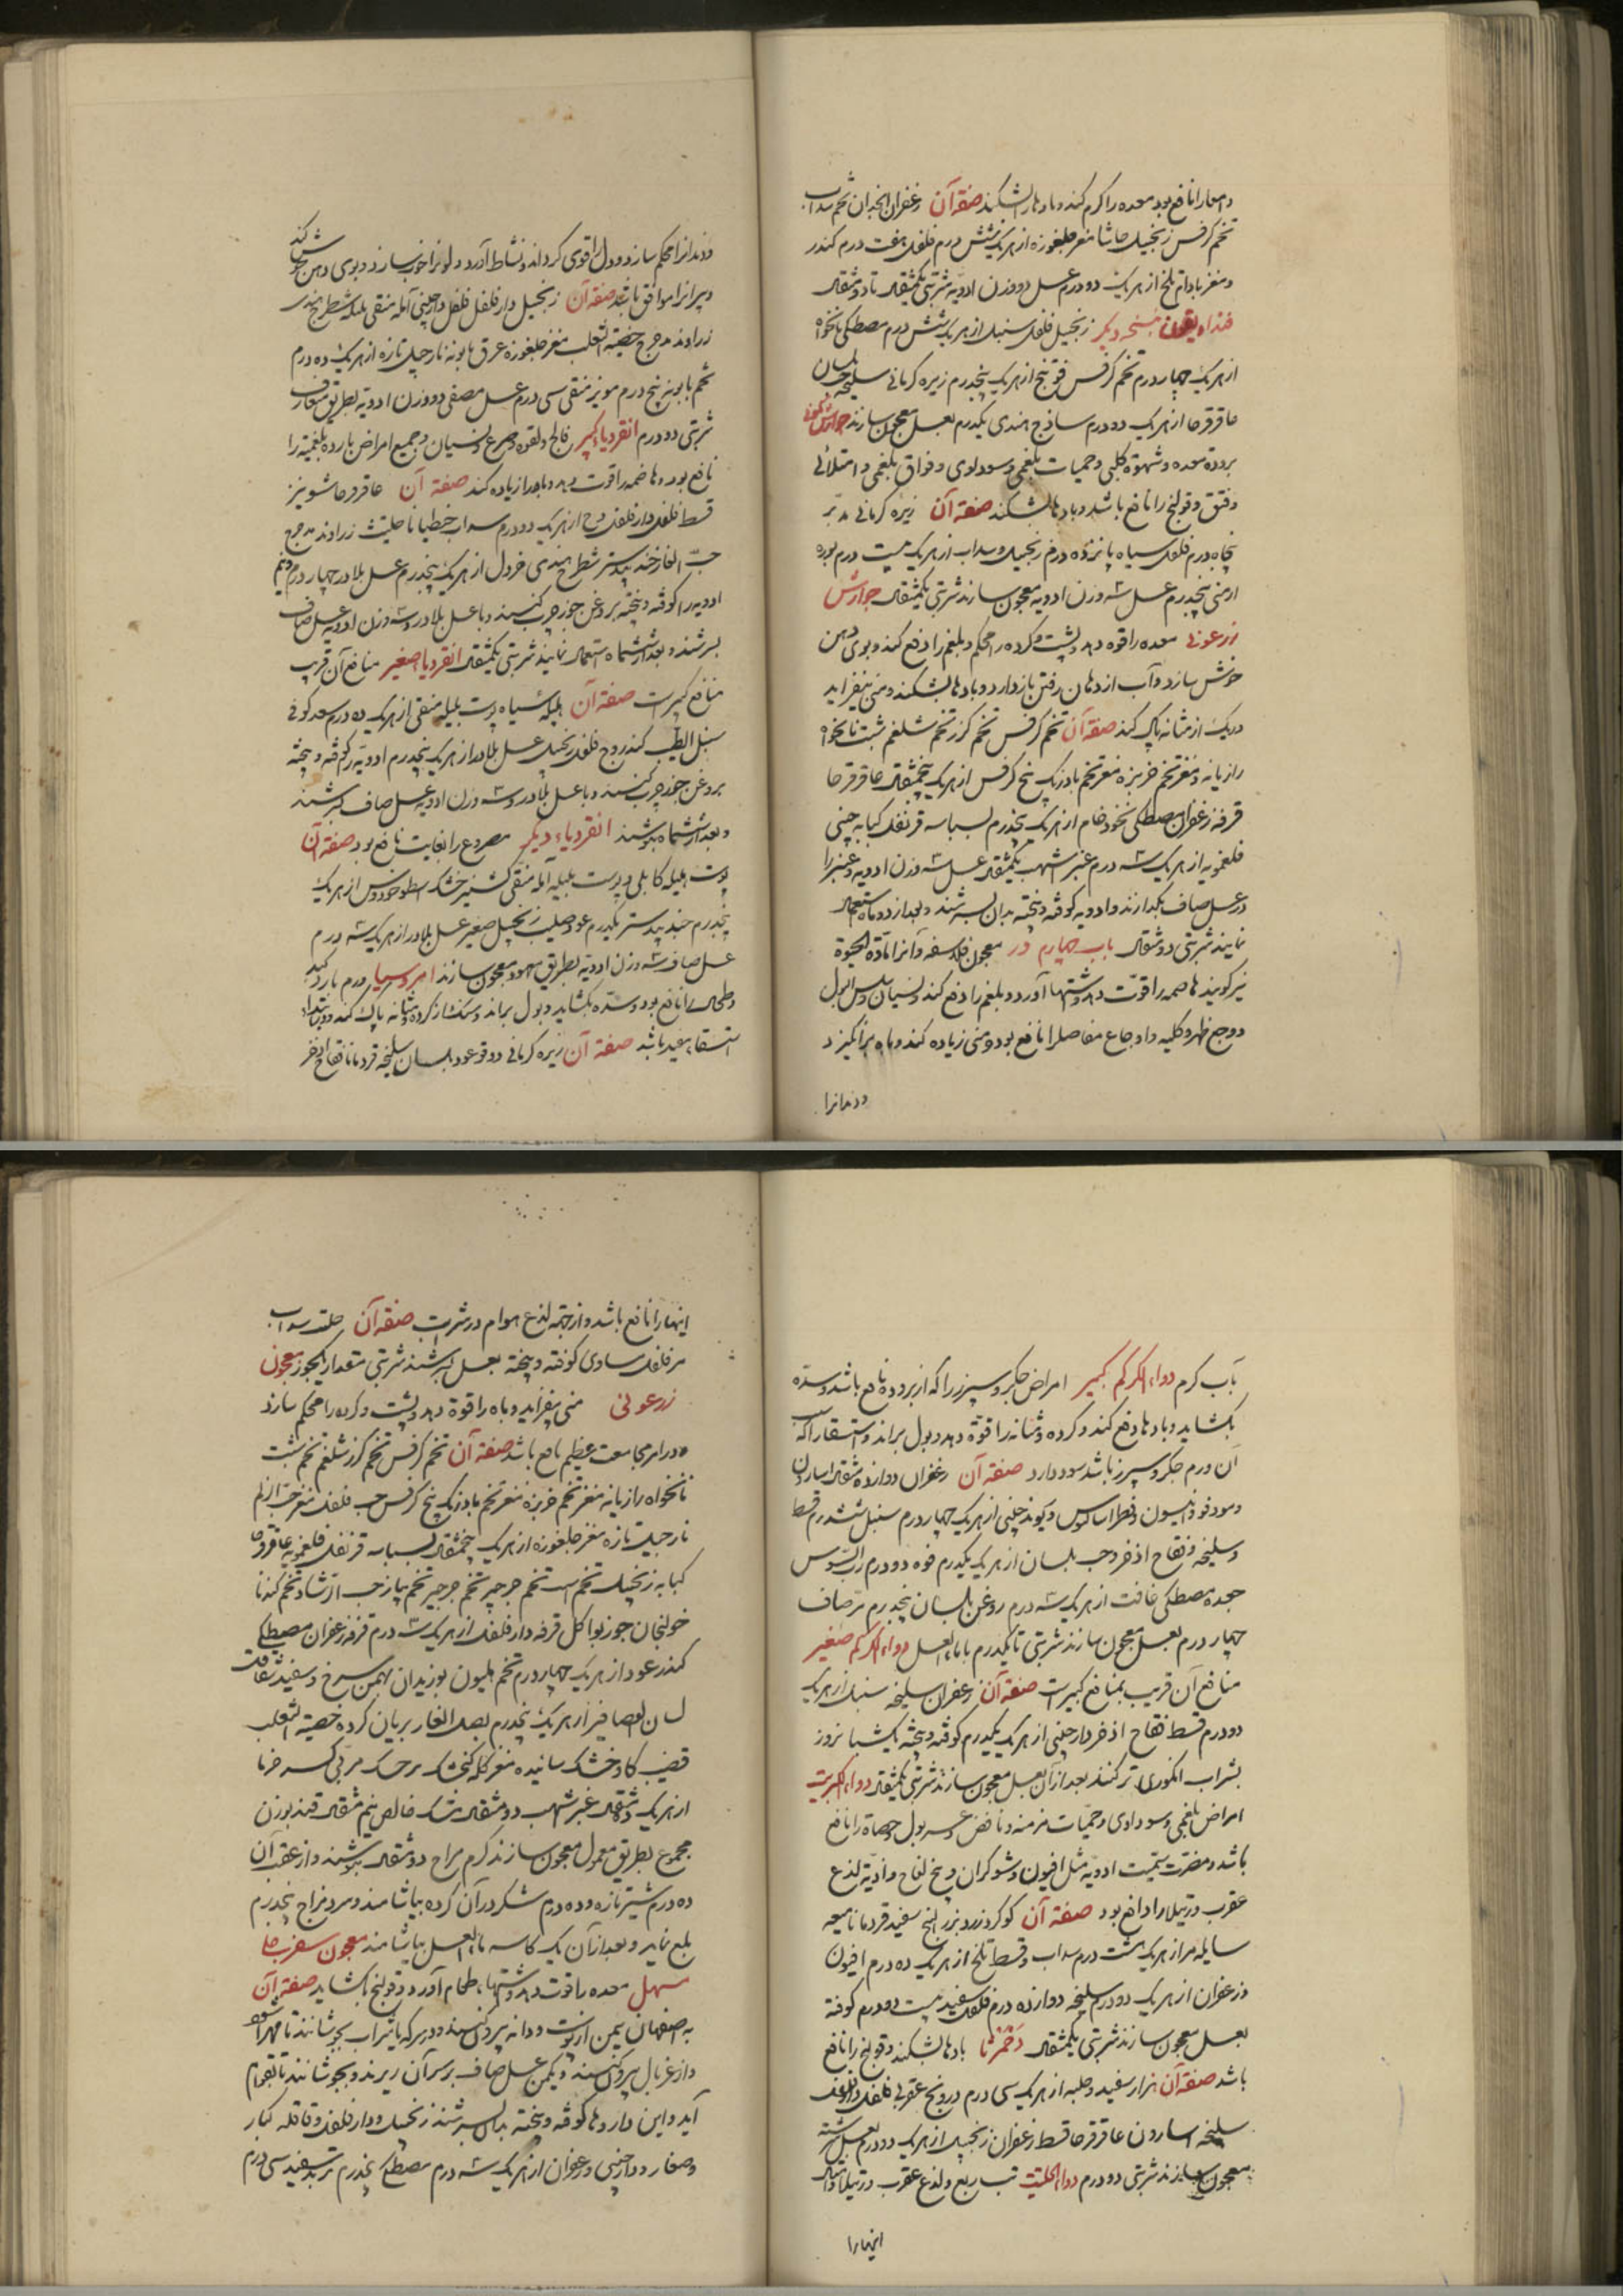 و امعا را نافع بود معده را گرم کند و بادها را بشکند صفة آن زعفران انجدان تخم سداب
تخم کرفس زنجبیل حاشا مغز جلغوزه از هریک شش درم فلفل هفت درم کندر
و مغز بادام تلخ از هریک دو درم عسل دو وزن ادویه شربتی یکمثقال تا دو مثقال
نسخه دیگر زنجبیل فلفل سنبل از هریک شش درم مصطکی نانخواه
از هریک چهار درم تخم کرفس فوتنج از هریک پنجدرم زیره کرمانی سلیخه حب بلسان
عاقرقرحا از هریک دو درم ساذج هندی یکدرم بعسل معجون سازند جوارش کمونی
برودة معده و شهوة کلبی و حمیات بلغمی و سوداوی و فواق بلغمی و امتلائی
و فتق و قولنج را نافع باشد و بادها بشکند صفة آن زیره کرمانی مدبر
پنجاه درم فلفل سیاه پانزده درم زنجبیل و سداب از هریک بیست درم بوره
ارمنی پنجدرم عسل سه وزن ادویه معجون سازند شربتی یکمثقال جوارش
زرعونی معده را قوه دهد و پشت و کرده را محکم و بلغم را دفع کند و بوی دهن
خوش سازد و آب از دهان رفتن باز دارد و بادها بشکند و منی بیفزاید
و ریک از مثانه پاک کند صفة آن تخم کرفس تخم کزر تخم شلغم شبت نانخواه
رازیانه و مغز تخم خربزه مغز تخم بادرنک بیخ کرفس از هریک پنجمثقال عاقرقرحا
قرفه زعفران مصطکی نخود خام از هریک پنجدرم بسباسه قرنفل کبابه چینی
فلغمویه از هریک سه درم عنبر اشهب یکمثقال عسل سه وزن ادویه و عنبر را
در عسل صاف بگدازند و ادویه کوفته و بیخته بدان بسرشند و بعد از دو ماه استعمال
نمایند شربتی دو مثقال باب چهارم در معجون فلاسفه و آنرا مادة الحیوة
نیز گویند هاضمه را قوت دهد و اشتها آورد و بلغم را دفع کند و نسیان و سلس البول
و وجع ظهر و کلیه و اوجاع مفاصل را نافع بود و منی زیاده کند و باه برانگیزد
و دندانرا
و دندانرا محکم سازد و دل را قوی گرداند و نشاط آورد و لونرا خوب سازد و بوی دهن خوش کند
و پیرانرا موافق باشد صفة آن زنجبیل دارفلفل فلفل دارچینی آمله منقی بلیله شیطرج هندی
زراوند مدحرج خصیة الثعلب مغز جلغوزه عرق بابونه نارجیل تازه از هریک ده درم
تخم بابونج پنج درم مویز منقی سی درم عسل مصفی دو وزن ادویه بطریق متعارف
شربتی دو درم انقردیاء کبیر فالج و لقوه و صرع و نسیان و جمیع امراض بارده بلغمیه را
نافع بود و هاضمه را قوت دهد و باه را زیاده کند صفة آن عاقرقرحا شونیز
قسط فلفل دارفلفل وج از هریک دو درم سداب جنطیانا حلتیت زراوند مدحرج
حب الغار جندبیدستر شیطرج هندی خردل از هریک پنجدرم عسل بلادر چهار درم و نیم
ادویه را کوفته و بیخته بروغن جوز چرب کنند و با عسل بلادر و سه وزن ادویه عسل صاف
بسرشند و بعد از ششماه استعمال نمایند شربتی یکمثقال انقردیاء صغیر منافع آن قریب
منافع کبیر است صفة آن هلیله سیاه پوست بلیله منقی از هریک ده درم سعد کوفی
سنبل الطیب کندر وج فلفل زنجبیل عسل بلادر از هریک پنجدرم ادویه را کوفته و بیخته
بروغن جوز چرب کنند و با عسل بلادر و سه وزن ادویه عسل صاف بسرشند
و بعد از ششماه بنوشند انقردیاء دیگر مصروع را بغایت نافع بود صفة آن
پوست هلیله کابلی و پوست بلیله آمله منقی گشنیز خشک اسطوخودوس از هریک
پنجدرم جندبیدستر یکدرم عود صلیب زنجبیل صغیر عسل بلادر از هریک سه درم
عسل صاف سه وزن ادویه بطریق معهود معجون سازند امروسیا ورم بارد کبد
و طحال را نافع بود و سده بگشاید و بول براند و سنک از کرده و مثانه پاک کند و در ابتداء
استسقاء مفید باشد صفة آن زیره کرمانی دوقو عود بلسان سلیخه قردمانا فقاح اذخر
بآب گرم دواء الکرکم کبیر امراض جگر و سپرز را که از بروده نافع باشد و سده
بگشاید و بادها دفع کند و کرده و مثانه را قوة دهد و بول براند و استسقا را که سبب
آن ورم جگر و سپرز باشد سود دارد صفة آن زعفران دوازده مثقال اسارون
و مو و دوقو و انیسون و فطراسالیون و ریوند چینی از هریک چهار درم سنبل ششدرم قسط
و سلیخه و فقاح اذخر و حب بلسان از هریک یکدرم فوه دو درم رب السوس
جعده مصطکی غافت از هریک سه درم روغن بلسان پنجدرم مر صاف
چهار درم بعسل معجون سازند شربتی تا یکدرم با ماء العسل دواء الکرکم صغیر
منافع آن قریب بمنافع کبیر است صفة آن زعفران سلیخه سنبل از هریک
دو درم قسط فقاح اذخر دارچینی از هریک یکدرم کوفته و بیخته یکشبانروز
بشراب انگوری تر کنند بعد از آن بعسل معجون سازند شربتی یکمثقال دواء الکبریت
امراض بلغمی و سوداوی و حمیات مزمنه و نافض و عسر بول و حصاة را نافع
باشد و مضرت سمیت ادویه مثل افیون و شوکران و بیخ لفاح و اذیة لذع
عقرب و رتیلا را دافع بود صفة آن کوکرد زرد بزرالبنج سفید قردمانا میعه
سایله مر از هریک هشت درم سداب و قسط تلخ از هریک ده درم افیون
و زعفران از هریک دو درم سلیخه دوازده درم فلفل سفید بیست و دو درم کوفته
بعسل معجون سازند شربتی یکمثقال دحمرثا بادها بشکند و قولنج را نافع
باشد صفة آن هزار سفید و حلبه از هریک سی درم درونج عقربی فلفل دارفلفل
سلیخه اسارون عاقرقرحا قسط زعفران زنجبیل از هریک دو درم بعسل سرشته
معجون سازند شربتی دو درم دواء الحلتیت تب ربع و لذع عقرب و رتیلا و امثال
اینهارا
اینها را نافع باشد و از جهة لذع هوام در شربت صفة آن حلتیت سداب
مر فلفل مساوی کوفته و بیخته بعسل بسرشند شربتی مقدار یکجوز معجون
زرعونی منی بیفزاید و باه را قوة دهد و پشت و کرده را محکم سازد
و در امر مجامعت عظیم نافع باشد صفة آن تخم کرفس تخم کزر شلغم تخم شبت
نانخواه رازیانه مغز تخم خربزه مغز تخم بادرنک بیخ کرفس حب فلفل مغز حب الزلم
نارجیل تازه مغز جلغوزه از هریک پنجمثقال بسباسه قرنفل فلغمویه عاقرقرحا
کبابه زنجبیل تخم اسپست تخم جرجیر تخم پیاز حب الرشاد تخم گندنا
خولنجان جوزبوا کل قرفه دارفلفل از هریک سه درم قرفه زعفران مصطکی
کندر عود از هریک چهار درم تخم هلیون بوزیدان بهمن سرخ و سفید شقاقل
لسان العصافیر از هریک پنجدرم بصل الفار بریان کرده خصیة الثعلب
قضیب گاو خشک سائیده مغز کله گنجشک سر حسک مربی خرما
از هریک ده مثقال عنبر اشهب دو مثقال مشک خالص نیم مثقال قند بوزن
مجموع بطریق معمول معجون سازند گرم مزاج دو مثقال بنوشند و از عقب آن
ده درم شیر تازه و ده درم شکر در آن کرده بیاشامند و سرد مزاج پنجدرم
بلع نماید و بعد از آن یک کاسه ماء العسل بیاشامند معجون سفرجلی
مسهل معده را قوت دهد و اشتهاء طعام آورد و قولنج بگشاید صفة آن
به اصفهان یکمن از پوست و دانه بیرون کنند و در سرکه یا شراب بجوشانند تا مهرا شود
و از غربال بیرون کنند و یکمن عسل صاف بر سر آن ریزند و بجوشانند تا بقوام
آید و این داروها کوفته و بیخته بدان بسرشند زنجبیل و دارفلفل و قاقله کبار
و صغار و دارچینی و زعفران از هریک سه درم مصطکی پنجدرم تربد سفید سی درم